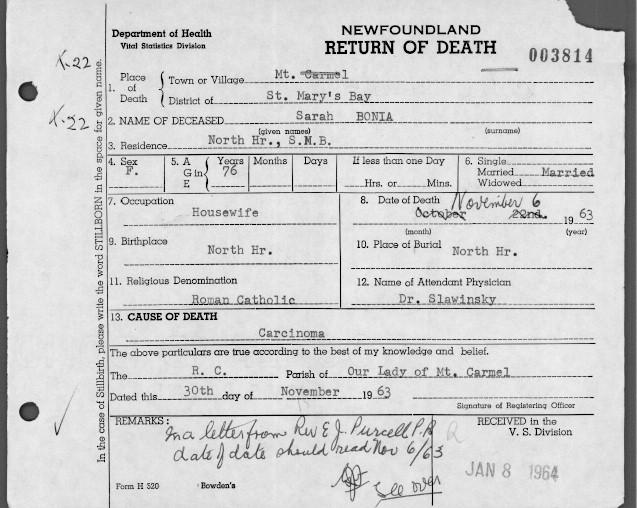 Department of Health
Vital Statistics Division
NEWFOUNDLAND
RETURN OF DEATH
003814
X-22
X-22
In the case of Stillbirth, please write the word STILLBORN in the space for given name.
1. Place of Death
Town or Village Mt. Carmel
District of St. Mary's Bay
2. NAME OF DECEASED Sarah BONIA
(given names) (surname)
3. Residence North Hr., S.M.B.
4. Sex F.
5. AGE in Years 76 Months Days
If less than one Day
Hrs. or Mins.
6. Single
Married Married
Widowed
7. Occupation
Housewife
8. Date of Death November 6
October 22nd. 1963
(month) (year)
9. Birthplace
North Hr.
10. Place of Burial North Hr.
11. Religious Denomination
Roman Catholic
12. Name of Attendant Physician
Dr. Slawinsky
13. CAUSE OF DEATH
Carcinoma
The above particulars are true according to the best of my knowledge and belief.
The R. C. Parish of Our Lady of Mt. Carmel
Dated this 30th day of November 1963
Signature of Registering Officer
REMARKS:
In a letter from Rev E J. Purcell P.P.
date of date should read Nov 6/63
See over
RECEIVED in the
V. S. Division
JAN 8 1964
Form H 520 Bowden's